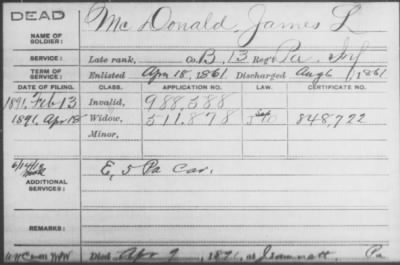 DEAD
NAME OF SOLDIER:
Mc Donald, James L
SERVICE:
Late rank, Co. B, 13 Reg't Pa. Inf
TERM OF SERVICE:
Enlisted Apr 18, 1861 Discharged Aug 6, 1861
DATE OF FILING. CLASS. APPLICATION NO. LAW. CERTIFICATE NO.
1891, Feb 13 Invalid, 988,588
1891, Apr 18 Widow, 511,878 848,722
Minor,
ADDITIONAL SERVICES:
E, 5 Pa Cav.
REMARKS:
Died Apr 9, 1891, at Pa